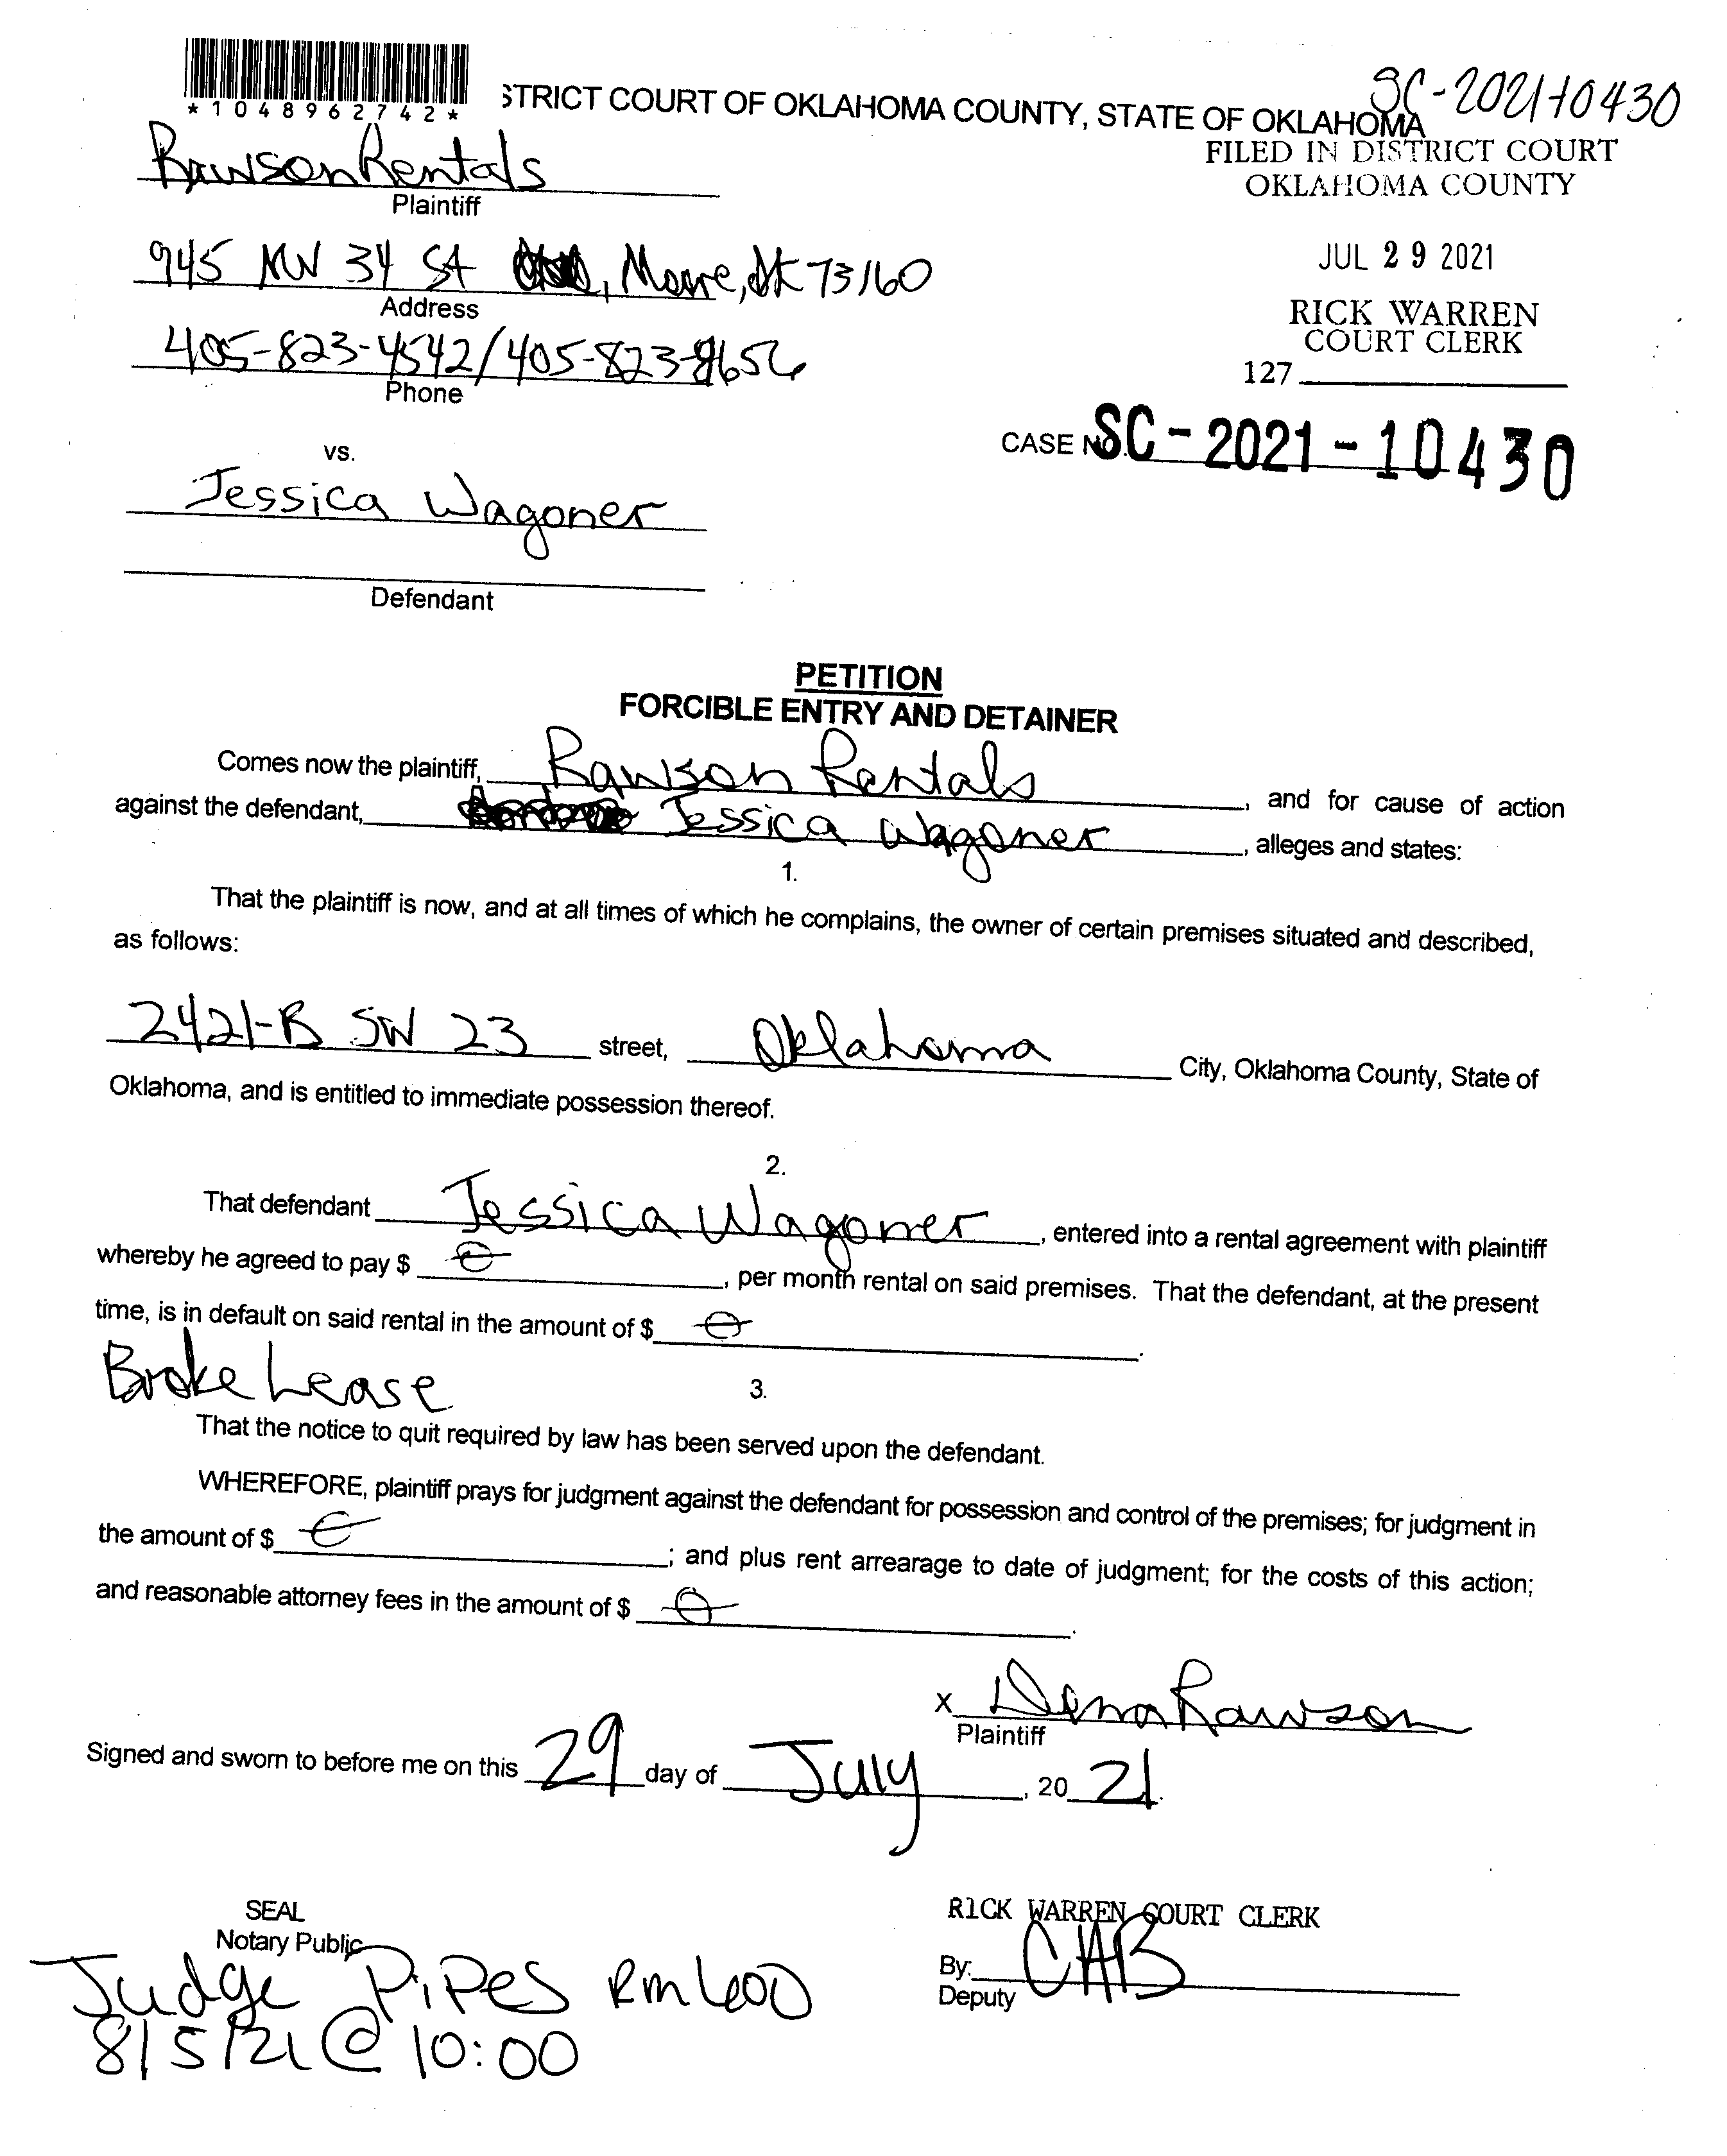 *1048962742*
STRICT COURT OF OKLAHOMA COUNTY, STATE OF OKLAHOMA
SC-2021-10430
FILED IN DISTRICT COURT
OKLAHOMA COUNTY
Rawson Rentals
Plaintiff
JUL 29 2021
945 NW 34 St , Moore, Ok 73160
Address
RICK WARREN
COURT CLERK
405-823-4542/405-823-9656
Phone
127
CASE NO. SC-2021-10430
vs.
Jessica Wagoner
Defendant
PETITION
FORCIBLE ENTRY AND DETAINER
Comes now the plaintiff, Rawson Rentals, and for cause of action
against the defendant, Jessica Wagoner, alleges and states:
1.
That the plaintiff is now, and at all times of which he complains, the owner of certain premises situated and described,
as follows:
2421-B SW 23 street, Oklahoma City, Oklahoma County, State of
Oklahoma, and is entitled to immediate possession thereof.
2.
That defendant Jessica Wagoner, entered into a rental agreement with plaintiff
whereby he agreed to pay $ 0, per month rental on said premises. That the defendant, at the present
time, is in default on said rental in the amount of $ 0.
Broke Lease
3.
That the notice to quit required by law has been served upon the defendant.
WHEREFORE, plaintiff prays for judgment against the defendant for possession and control of the premises; for judgment in
the amount of $ 0; and plus rent arrearage to date of judgment; for the costs of this action;
and reasonable attorney fees in the amount of $ 0.
X Dena Rawson
Plaintiff
Signed and sworn to before me on this 29 day of July, 2021.
SEAL
Notary Public
RICK WARREN COURT CLERK
By: CAB
Deputy
Judge Pipes Rm 600
8/5/21 @ 10:00